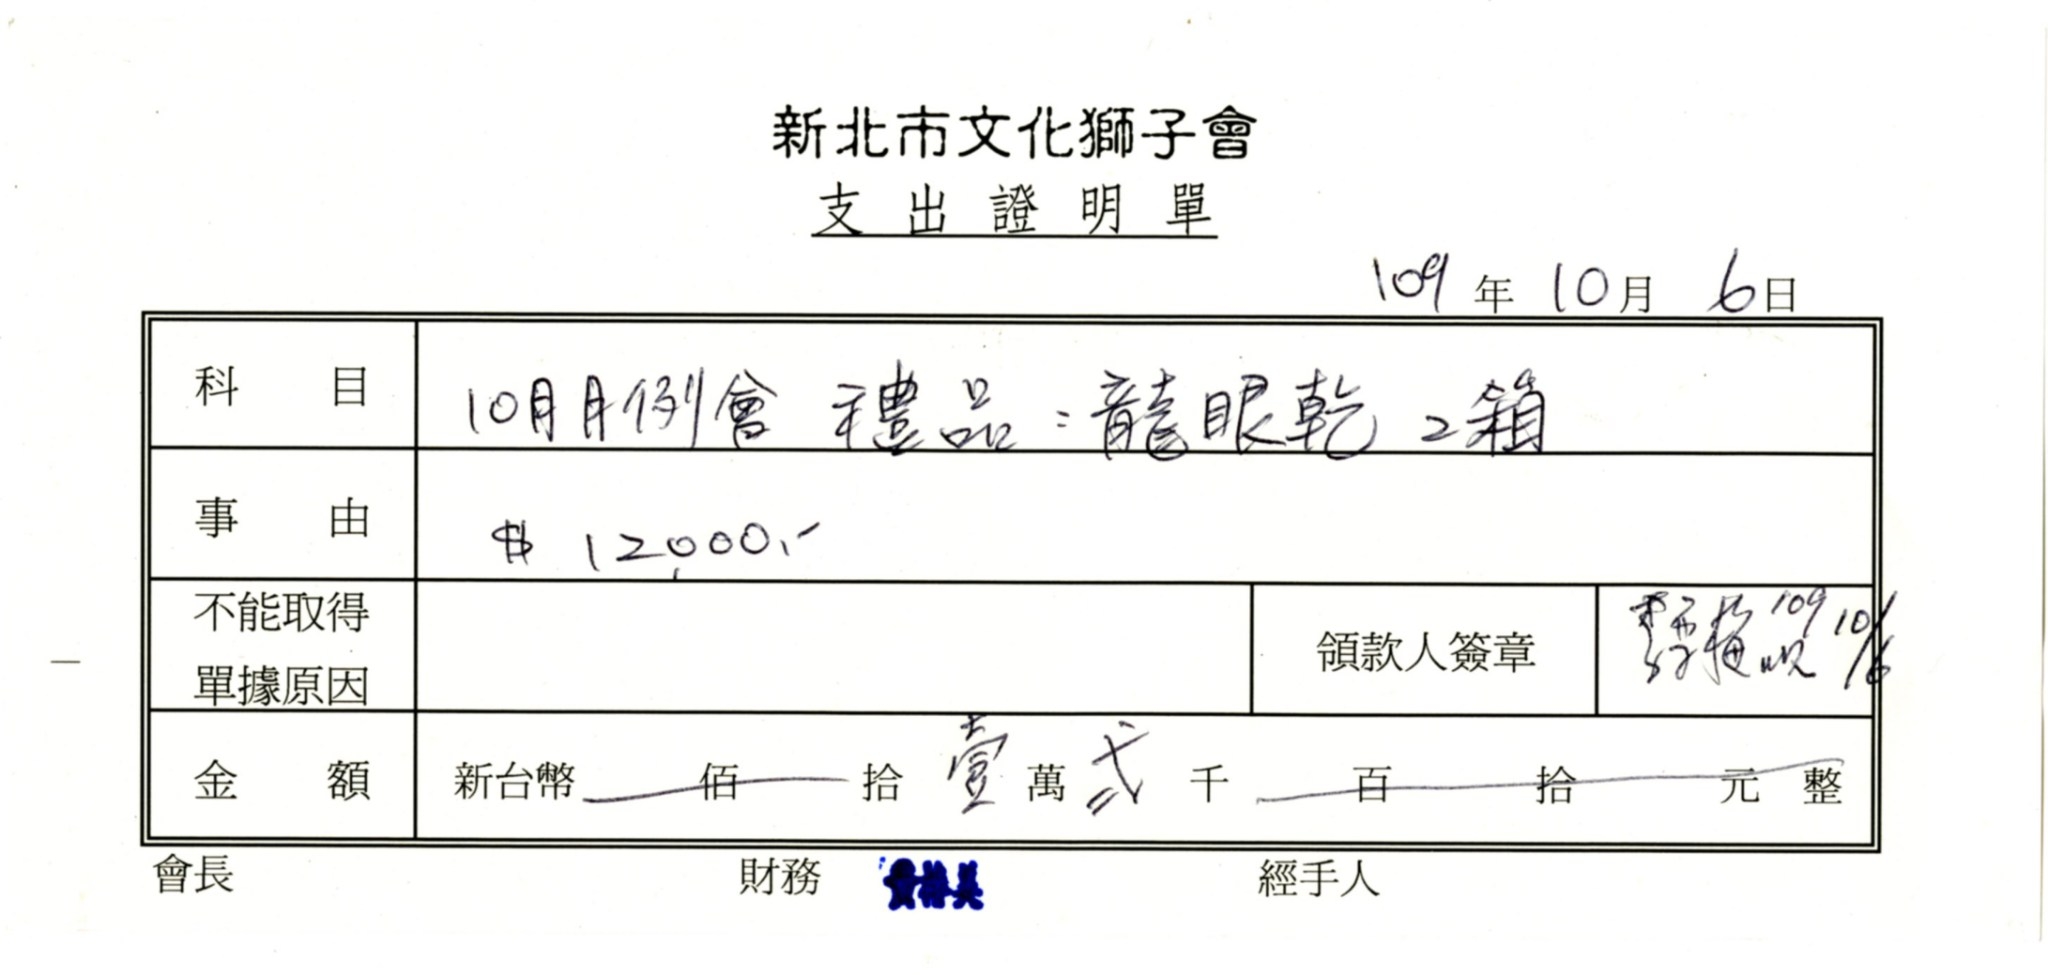 新北市文化獅子會
支出證明單
109年10月6日
科目 10月月例會 禮品:龍眼乾2箱
事由 $12,000.-
不能取得單據原因 領款人簽章 109 10/6
金額 新台幣 佰 拾 壹 萬 弍 千 百 拾 元 整
會長 財務 經手人